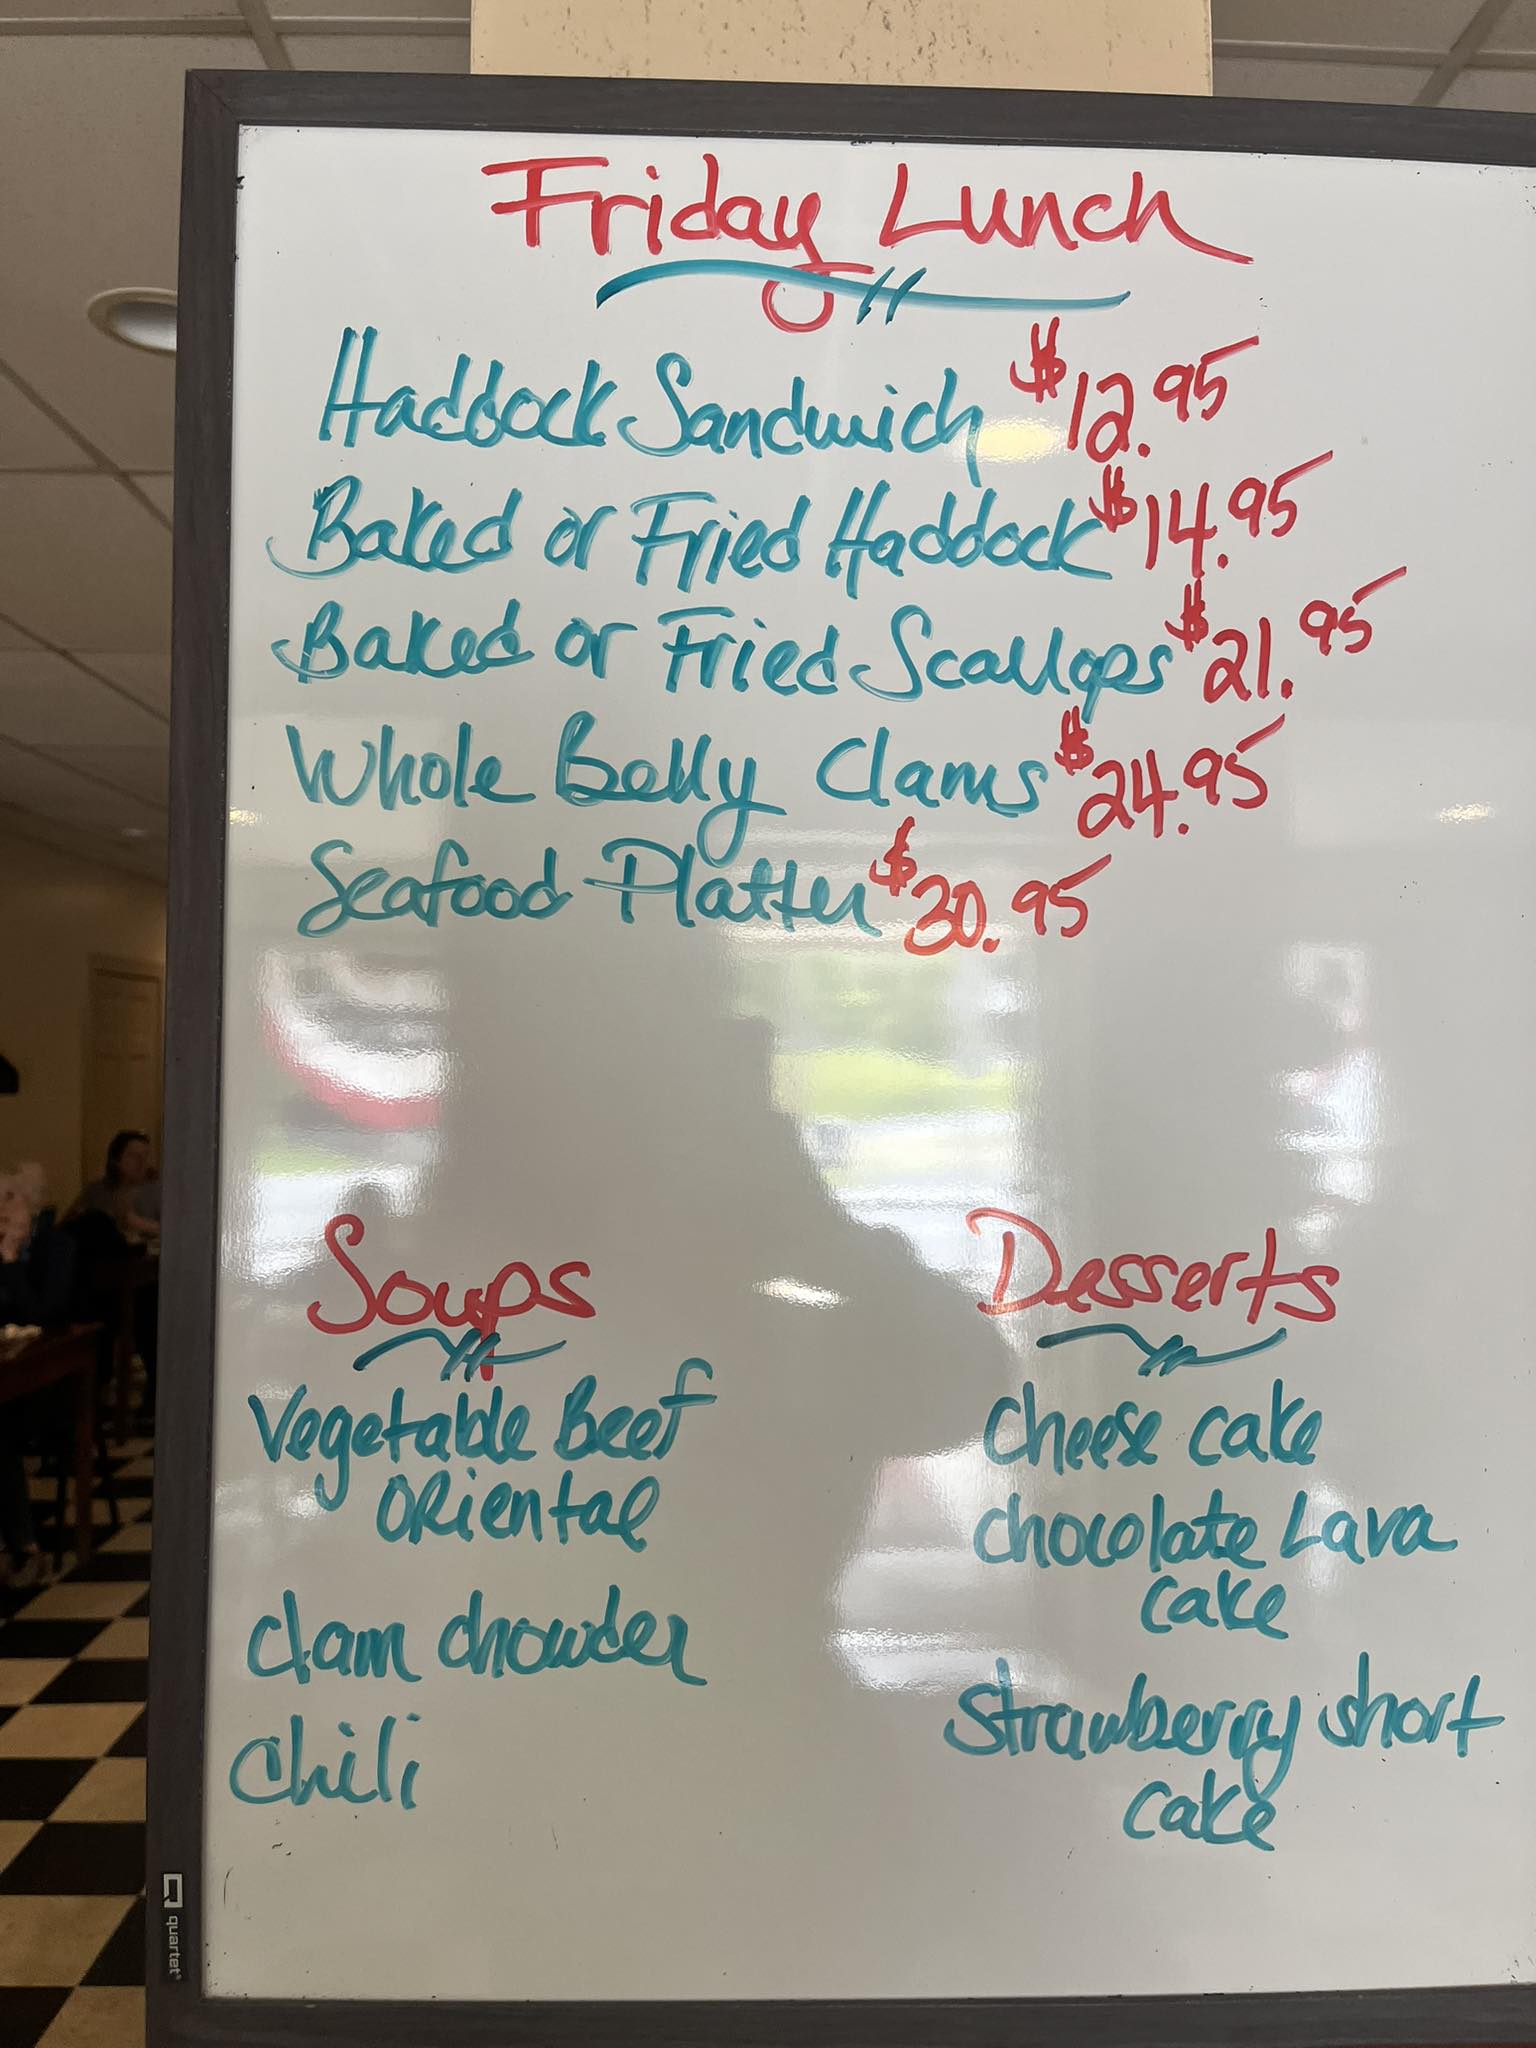 Friday Lunch
Haddock Sandwich $12.95
Baked or Fried Haddock $14.95
Baked or Fried Scallops $21.95
Whole Belly Clams $24.95
Seafood Platter $30.95
Soups
Vegetable Beef
Oriental
Clam chowder
Chili
Desserts
Cheese cake
Chocolate Lava
cake
Strawberry short
cake
quartet®